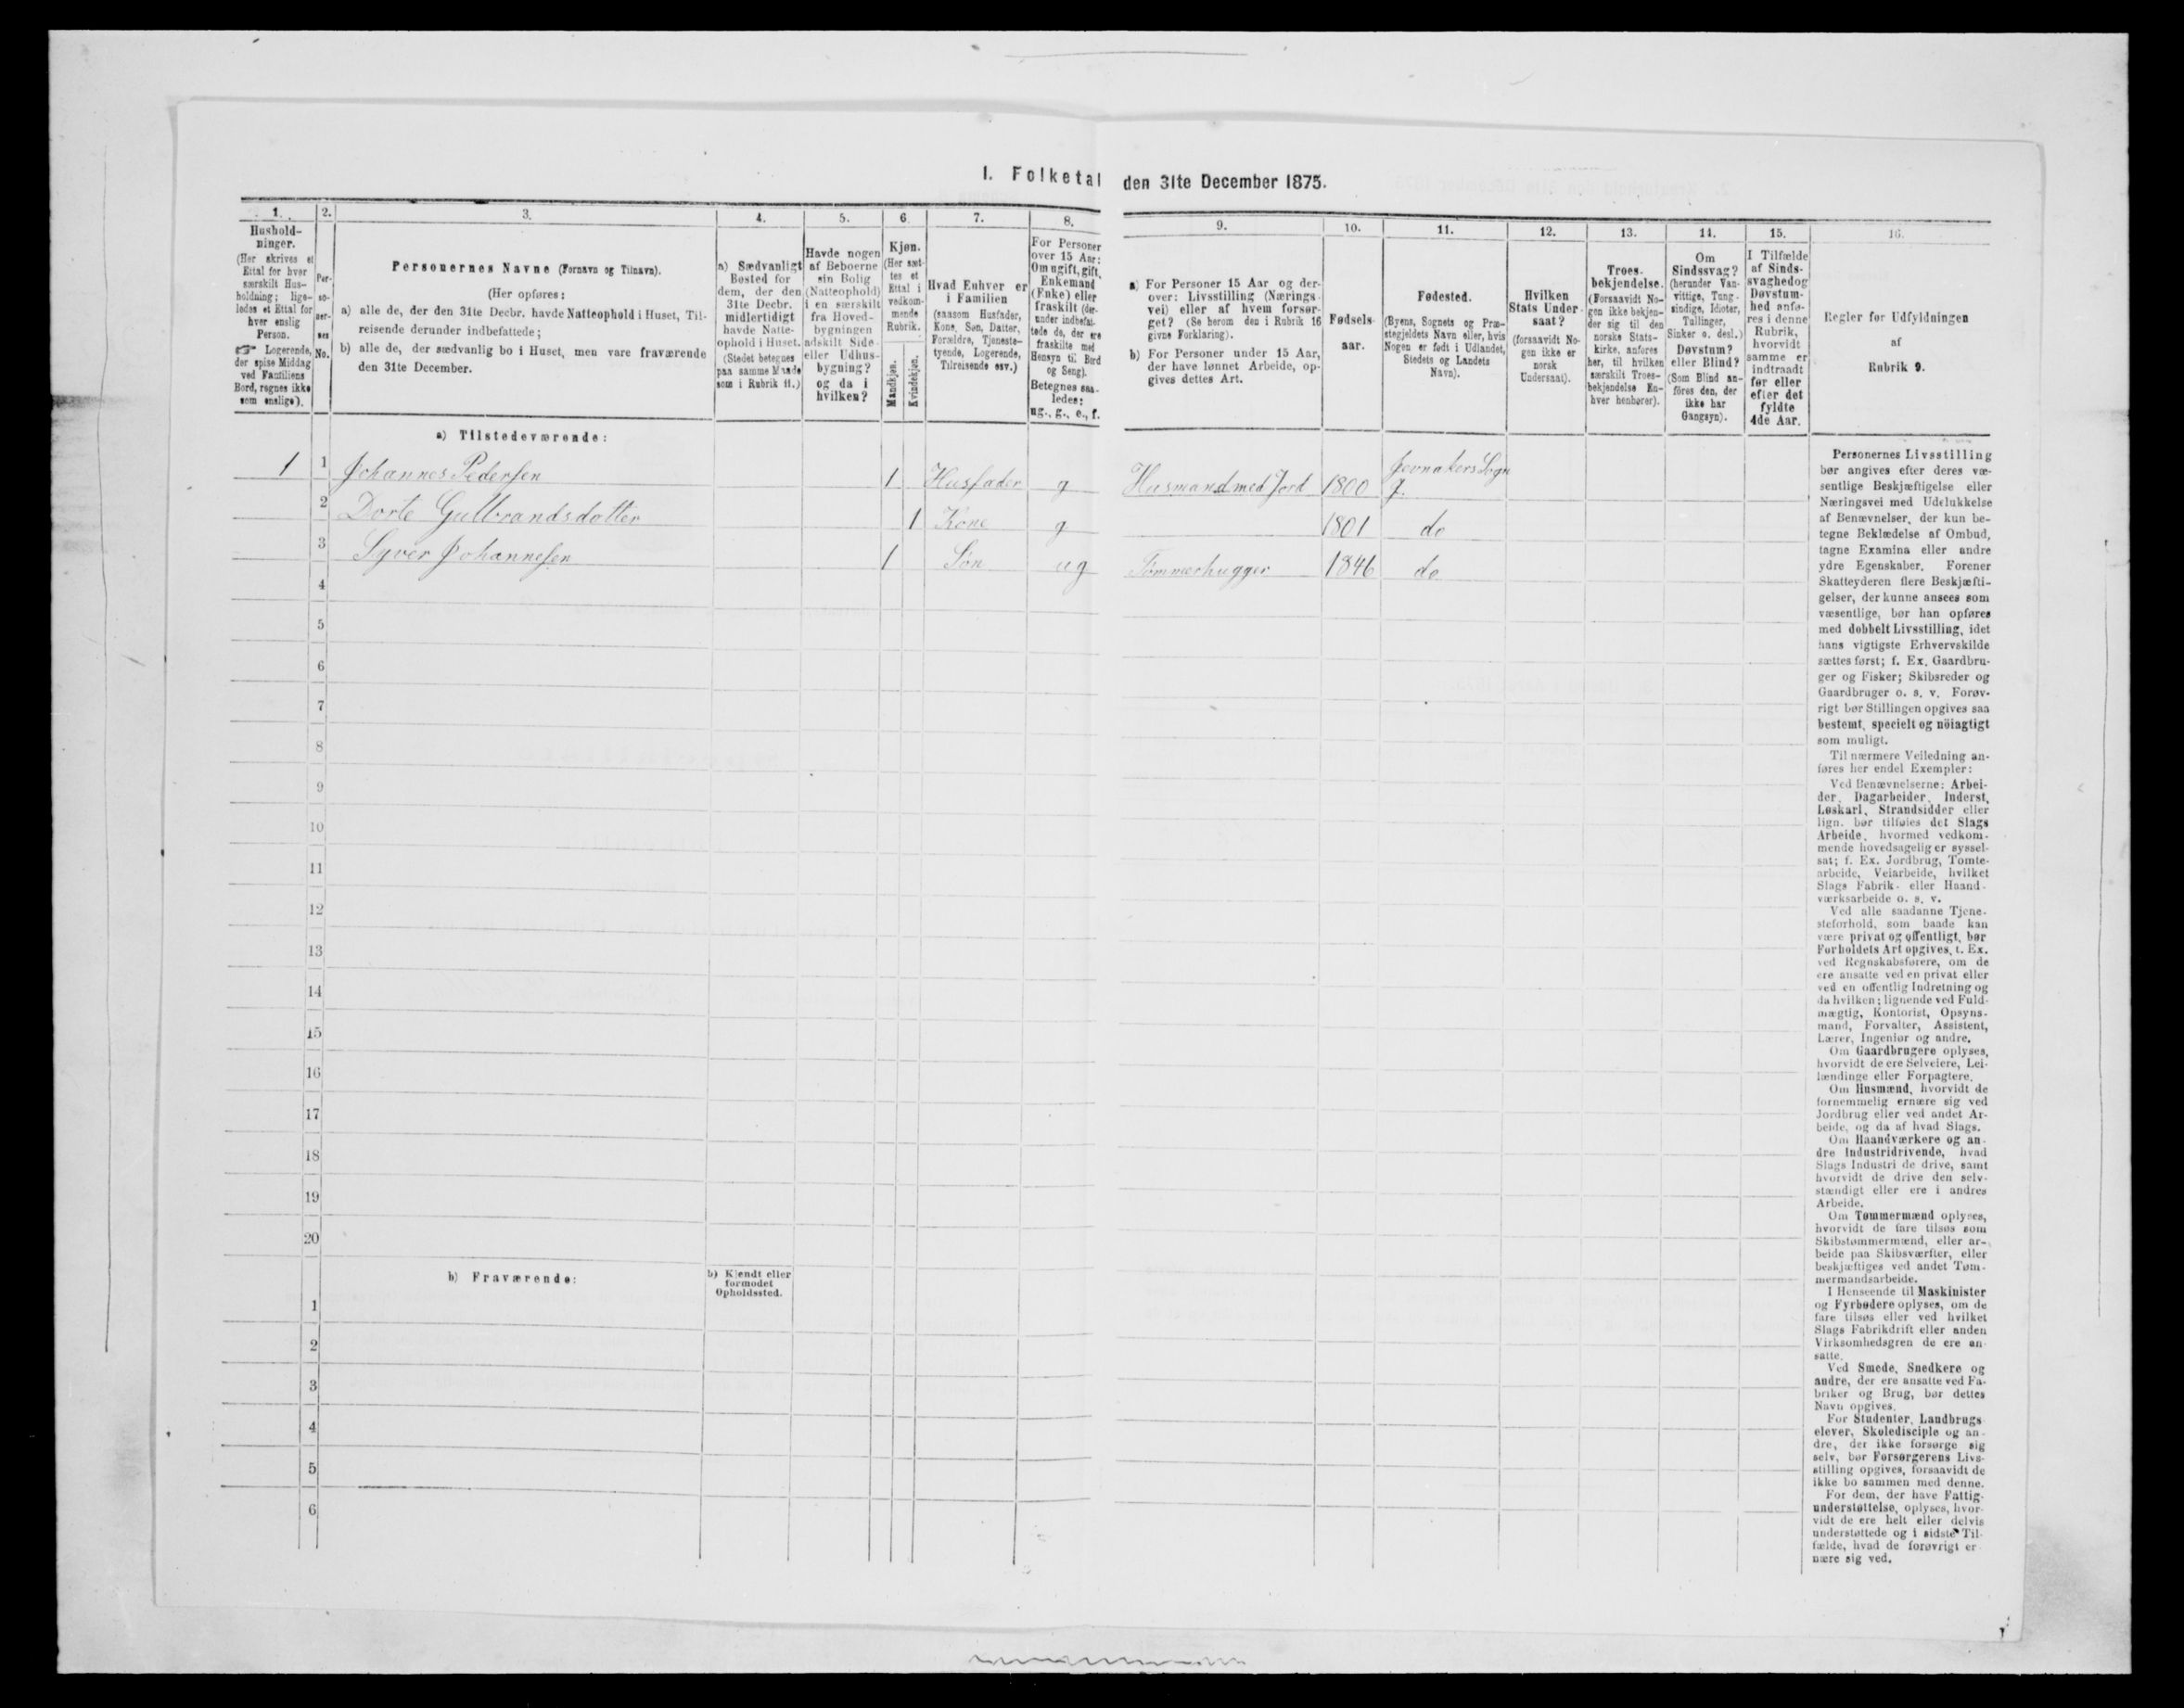 I. Folketal den 31te December 1875.
1. 2. 3. 4. 5. 6. 7. 8. 9. 10. 11. 12. 13. 14. 15. 16.
Hushold-
ninger.
(Her skrives et
Ettal for hver
særskilt Hus-
holdning; lige-
ledes et Ettal for
hver enslig
Person.
☞ Logerende,
der spise Middag
ved Familiens
Bord, regnes ikke
som enslige).
Per-
so-
ner-
nes
No.
Personernes Navne (Fornavn og Tilnavn).
(Her opføres:
a) alle de, der den 31te Decbr. havde Natteophold i Huset, Til-
reisende derunder indbefattede;
b) alle de, der sædvanlig bo i Huset, men vare fraværende
den 31te December.
a) Sædvanligt
Bosted for
dem, der den
31te Decbr.
midlertidigt
havde Natte-
ophold i Huset.
(Stedet betegnes
paa samme Maade
som i Rubrik 11.)
Havde nogen
af Beboerne
sin Bolig
(Natteophold)
i en særskilt
fra Hoved-
bygningen
adskilt Side-
eller Udhus-
bygning?
og da i
hvilken?
Kjøn.
(Her sæt-
tes et
Ettal i
vedkom-
mende
Rubrik.
Mandkjøn.
Kvindekjøn.
Hvad Enhver er
i Familien
(saasom Husfader,
Kone, Søn, Datter,
Forældre, Tjeneste-
tyende, Logerende,
Tilreisende osv.)
For Personer
over 15 Aar:
Om ugift, gift,
Enkemand
(Enke) eller
fraskilt (der-
under indbefat-
tede de, der ere
fraskilte med
Hensyn til Bord
og Seng).
Betegnes saa-
ledes:
ug., g., e., f.
a) For Personer 15 Aar og der-
over: Livsstilling (Nærings-
vei) eller af hvem forsør-
get? (Se herom den i Rubrik 16
givne Forklaring).
b) For Personer under 15 Aar,
der have lønnet Arbeide, op-
gives dettes Art.
Fødsels-
aar.
Fødested.
(Byens, Sognets og Præ-
stegjeldets Navn eller, hvis
Nogen er født i Udlandet,
Stedets og Landets
Navn).
Hvilken
Stats Under-
saat?
(forsaavidt No-
gen ikke er
norsk
Undersaat).
Troes-
bekjendelse.
(Forsaavidt No-
gen ikke bekjen-
der sig til den
norske Stats-
kirke, anføres
her, til hvilken
særskilt Troes-
bekjendelse En-
hver henhører).
Om
Sindssvag?
(herunder Van-
vittige, Tung-
sindige, Idioter,
Tullinger,
Sinker o. desl.)
Døvstum?
eller Blind?
(Som Blind an-
føres den, der
ikke har
Gangsyn).
I Tilfælde
af Sinds-
svaghed og
Døvstum-
hed anfø-
res i denne
Rubrik,
hvorvidt
samme er
indtraadt
før eller
efter det
fyldte
4de Aar.
Regler for Udfyldningen
af
Rubrik 9.
a) Tilstedeværende:
1 1 Johannes Pedersen 1 Husfader g Husmand med Jord 1800 Jevnakers Sogn
2 Dorte Gulbrandsdatter 1 Kone g 1801 do
3 Syver Johannesen 1 Søn ug Tømmerhugger 1846 do
4
5
6
7
8
9
10
11
12
13
14
15
16
17
18
19
20
b) Fraværende:
b) Kjendt eller
formodet
Opholdssted.
1
2
3
4
5
6
Personernes Livsstilling
bør angives efter deres væ-
sentlige Beskjæftigelse eller
Næringsvei med Udelukkelse
af Benævnelser, der kun be-
tegne Beklædelse af Ombud,
tagne Examina eller andre
ydre Egenskaber. Forener
Skatteyderen flere Beskjæfti-
gelser, der kunne ansees som
væsentlige, bør han opføres
med dobbelt Livsstilling, idet
hans vigtigste Erhvervskilde
sættes først; f. Ex. Gaardbru-
ger og Fisker; Skibsreder og
Gaardbruger o. s. v. Forøv-
rigt bør Stillingen opgives saa
bestemt, specielt og nöiagtigt
som muligt.
Til nærmere Veiledning an-
føres her endel Exempler:
Ved Benævnelserne: Arbei-
der, Dagarbeider, Inderst,
Løskarl, Strandsidder eller
lign. bør tilføies det Slags
Arbeide, hvormed vedkom-
mende hovedsagelig er syssel-
sat; f. Ex. Jordbrug, Tomte-
arbeide, Veiarbeide, hvilket
Slags Fabrik- eller Haand-
værksarbeide o. s. v.
Ved alle saadanne Tjene-
steforhold, som baade kan
være privat og offentligt, bør
Forholdets Art opgives, t. Ex.
ved Regnskabsførere, om de
ere ansatte ved en privat eller
ved en offentlig Indretning og
da hvilken; lignende ved Fuld-
mægtig, Kontorist, Opsyns-
mand, Forvalter, Assistent,
Lærer, Ingeniør og andre.
Om Gaardbrugere oplyses,
hvorvidt de ere Selveiere, Lei-
lændinge eller Forpagtere.
Om Husmænd, hvorvidt de
fornemmelig ernære sig ved
Jordbrug eller ved andet Ar-
beide, og da af hvad Slags.
Om Haandværkere og an-
dre Industridrivende, hvad
Slags Industri de drive, samt
hvorvidt de drive den selv-
stændigt eller ere i andres
Arbeide.
Om Tømmermænd oplyses,
hvorvidt de fare tilsøs som
Skibstømmermænd, eller ar-
beide paa Skibsværfter, eller
beskjæftiges ved andet Tøm-
mermandsarbeide.
I Henseende til Maskinister
og Fyrbødere oplyses, om de
fare tilsøs eller ved hvilket
Slags Fabrikdrift eller anden
Virksomhedsgren de ere an-
satte.
Ved Smede, Snedkere og
andre, der ere ansatte ved Fa-
briker og Brug, bør dettes
Navn opgives.
For Studenter, Landbrugs-
elever, Skoledisciple og an-
dre, der ikke forsørge sig
selv, bør Forsørgerens Livs-
stilling opgives, forsaavidt de
ikke bo sammen med denne.
For dem, der have Fattig-
understøttelse, oplyses, hvor-
vidt de ere helt eller delvis
understøttede og i sidste Til-
fælde, hvad de forøvrigt er-
nære sig ved.